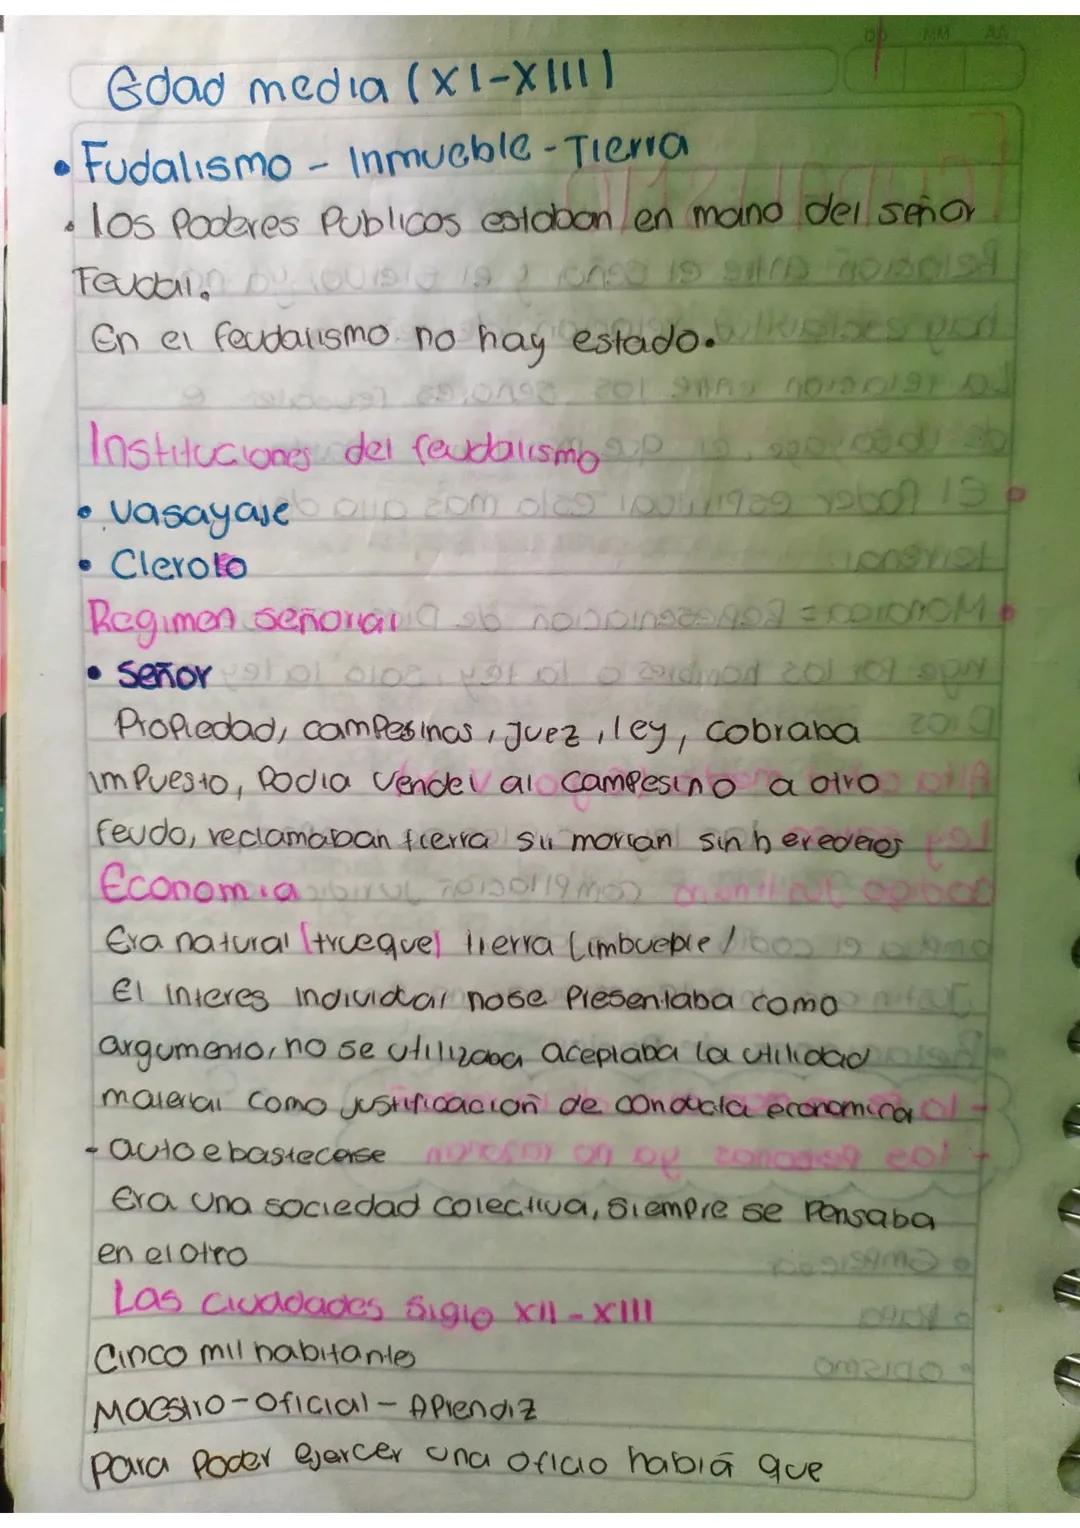 Edad media (XI-XIII)
• Fudalismo - Inmueble - Tierra
• los Poderes Publicos estaban en mano del señor
Feudal.
En el feudalismo no hay estado.
Instituciones del feudalismo
• Vasayaje
• Clerolo
Regimen señorial
• Señor
Propiedad, campesinos, juez, ley, cobraba
impuesto, Podia vender al campesino a otro
feudo, reclamaban tierra si morian sin herederos
Economia
Era natural (trueque) tierra (imbueble)
El interes individual nose Presentaba como
argumento, no se utilizaba aceptaba la utilidad
material como justificacion de conducta economica
- autoebastecerse
Era una sociedad colectiva, siempre se Pensaba
en el otro
Las ciudadades Siglo XII - XIII
Cinco mil habitantes
Maestro - Oficial - APrendiz
para Poder ejercer una oficio había que